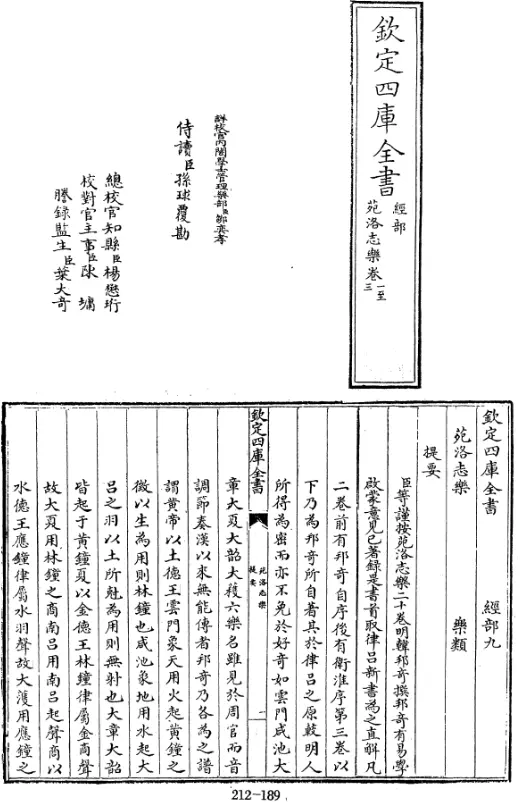 欽定四庫全書
經部
苑洛志樂卷一至三
詳校官內閣學士管理樂部臣鄒奕孝
侍讀臣孫球覆勘
總校官知縣臣楊懋珩
校對官主事臣陳墉
謄錄監生臣葉大奇
欽定四庫全書 經部九
苑洛志樂 樂類
提要
臣等謹按苑洛志樂二十卷明韓邦奇撰邦奇有易學
啟蒙意見已著錄是書首取律呂新書為之直解凡
二卷前有邦奇自序後有衛淮序第三卷以
下乃為邦奇所自著其於律呂之原較明人
所得為密而亦不免於好奇如雲門咸池大
欽定四庫全書
苑洛志樂
提要
一
章大夏大韶大濩六樂名雖見於周官而音
調節奏漢以來無能傳者邦奇乃各為之譜
謂黃帝以土德王雲門象天用火起黃鐘之
徵以生為用則林鐘也咸池象地用水起大
呂之羽以土所尅為用則無射也大章大韶
皆起于黃鐘夏以金德王林鐘律屬金商聲
故大夏用林鐘之商南呂用南呂起聲商以
水德王應鐘律屬水羽聲故大濩用應鐘之
212-189